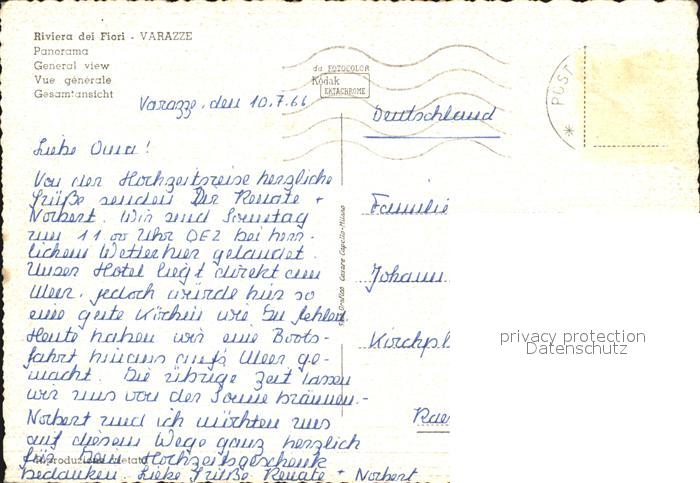 Riviera dei Fiori - VARAZZE
Panorama
General view
Vue générale
Gesamtansicht
da FOTOCOLOR
Kodak
EKTACHROME
POST
Varazze, den 10.7.66
Deutschland
Liebe Oma!
Von der Hochzeitsreise herzliche
Grüße senden Dir Renate +
Norbert. Wir sind Sonntag
um 11 00 Uhr bei herr-
lichem Wetter hier gelandet.
Unser Hotel liegt direkt am
Meer, jedoch würde hier so
eine gute Köchin wie Du fehlen.
Heute haben wir eine Boots-
fahrt hinaus aufs Meer ge-
macht. Die übrige Zeit lassen
wir uns von der Sonne bräunen.-
Norbert und ich möchten uns
auf diesem Wege ganz herzlich
für Dein Hochzeitsgeschenk
bedanken. Liebe Grüße Renate + Norbert
Familie
Johann
Kirchpl
Cesare Capello-Milano
Riproduzione vietata
privacy protection
Datenschutz